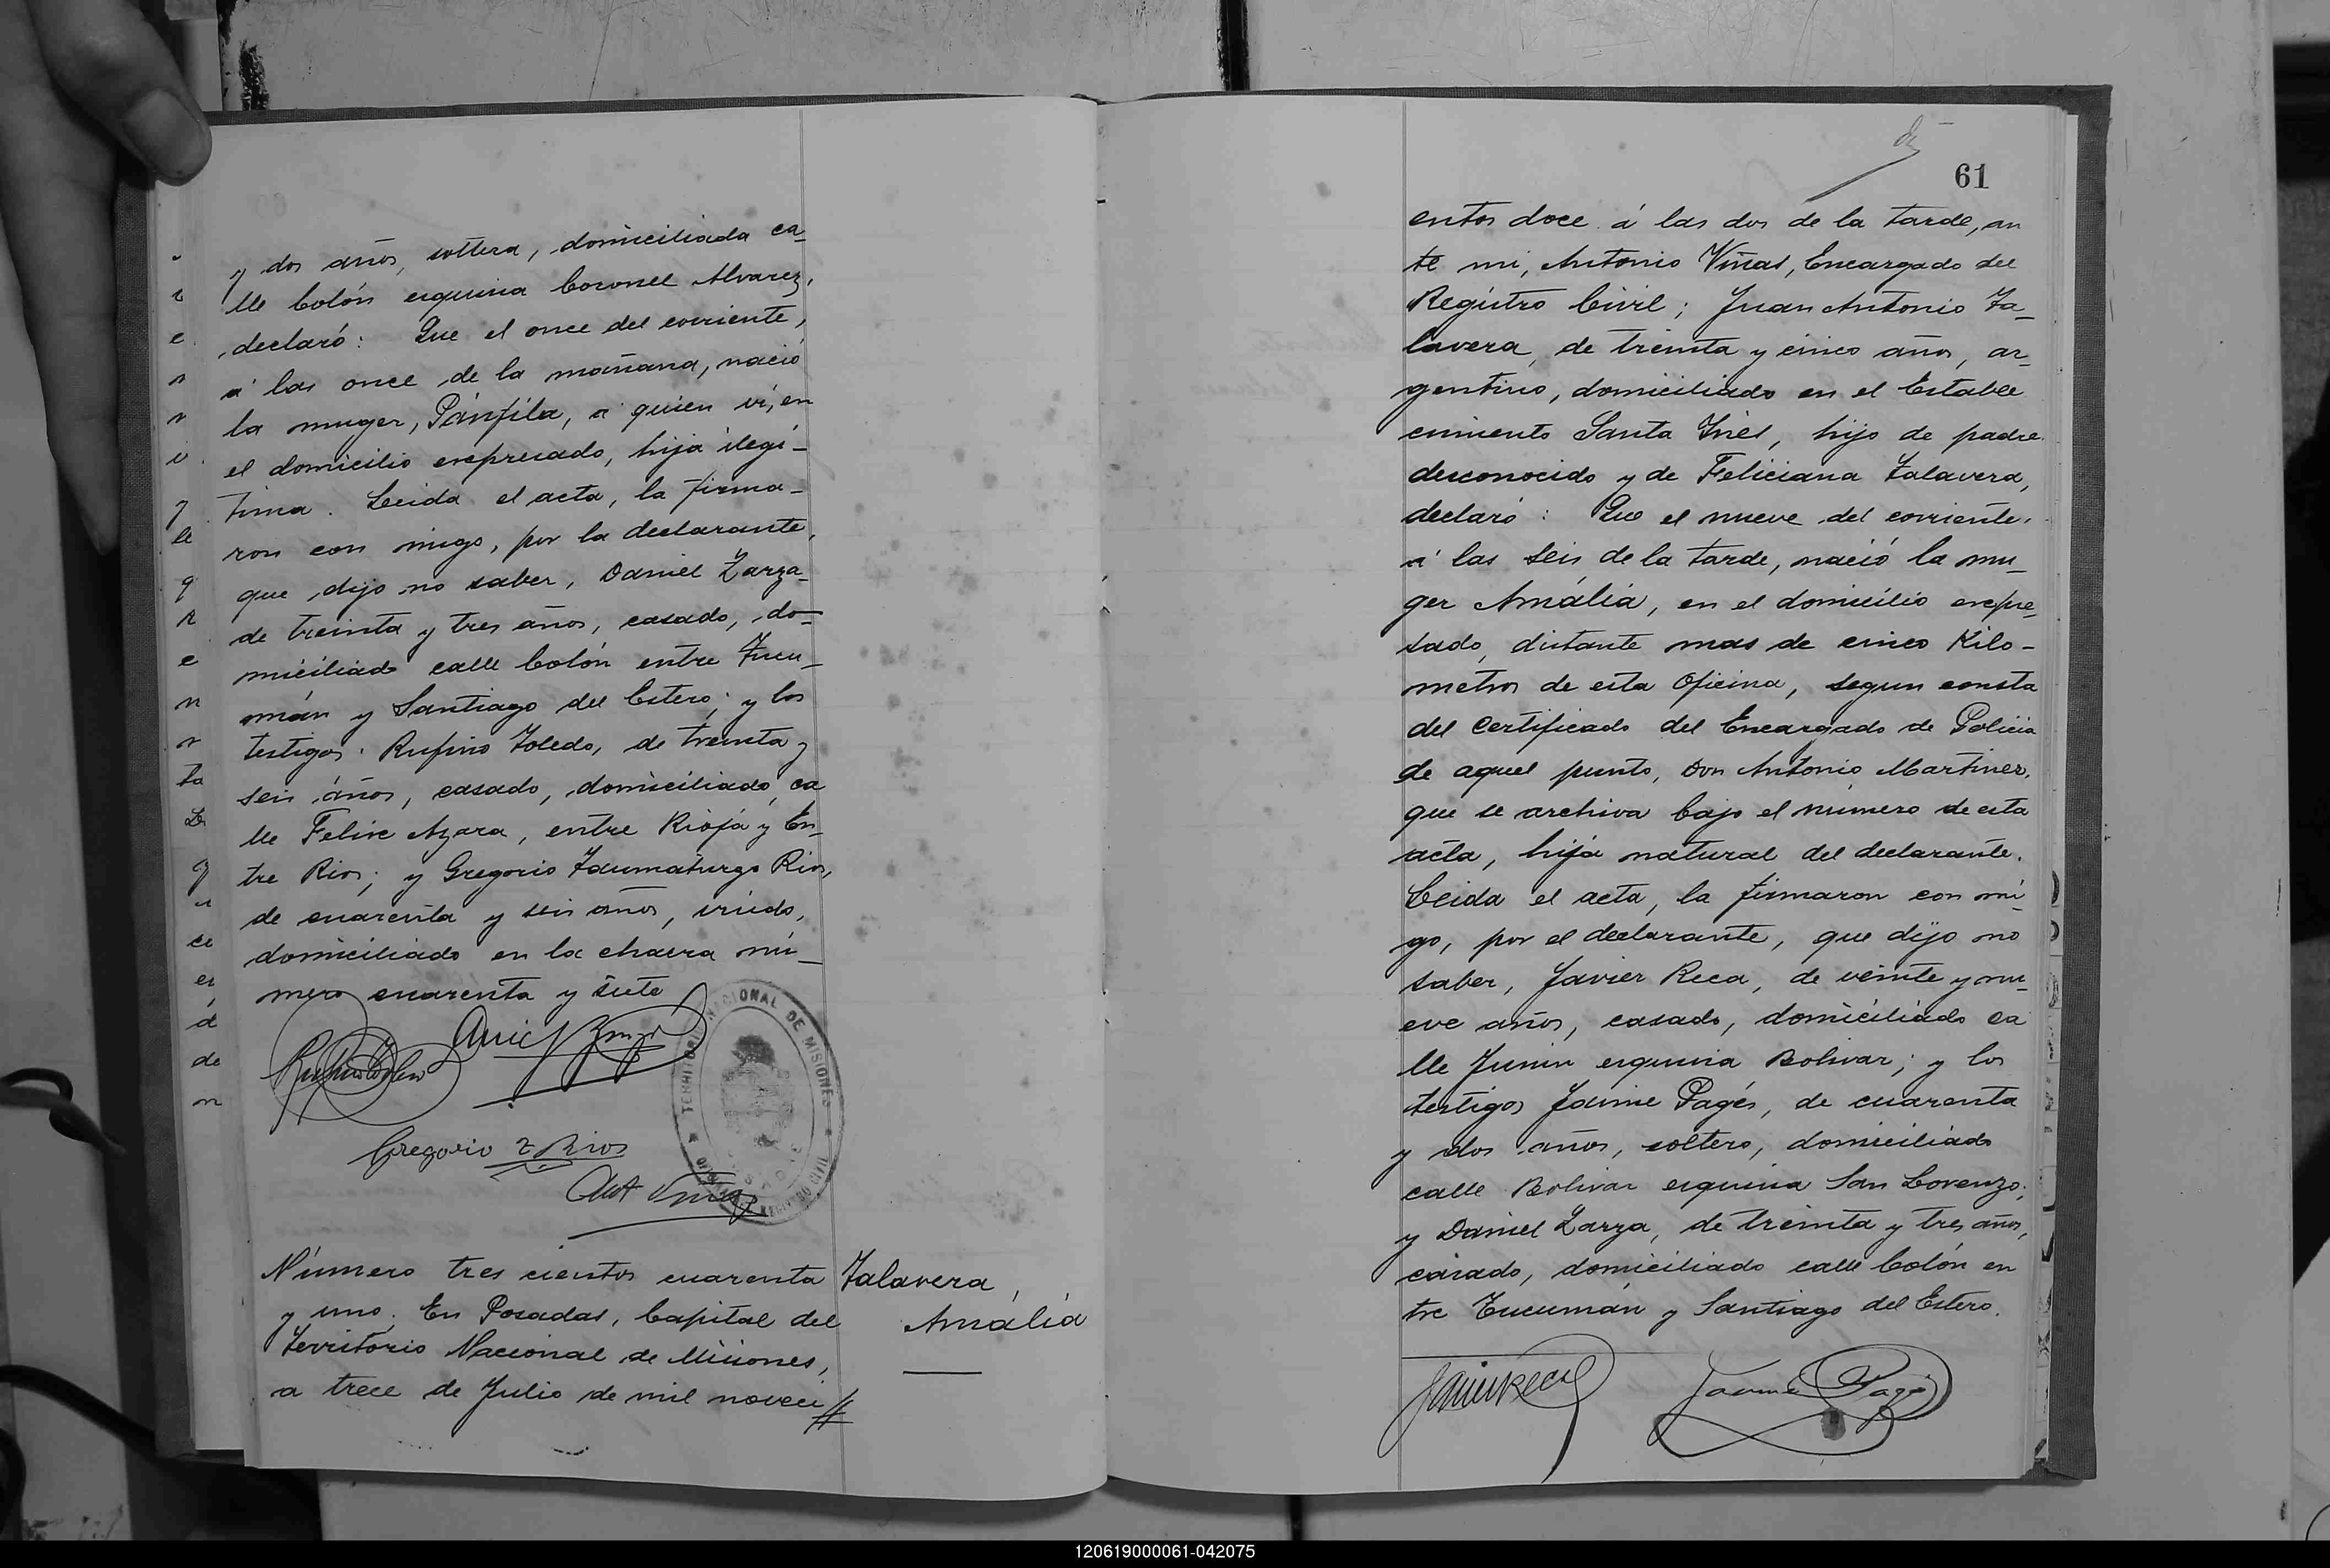 y dos años, soltera, domiciliada ca_
lle Colón esquina Coronel Alvarez,
declaró: Que el once del corriente,
á las once de la mañana, nació
la muger, Pánfila, á quien ví, en
el domicilio expresado, hija ilegí-
tima. Leida el acta, la firma-
ron con migo, por la declarante,
que dijo no saber, Daniel Zarza_
de treinta y tres años, casado, do-
miciliado calle Colón entre Tucu_
mán y Santiago del Estero; y los
testigos: Rufino Toledo, de treinta y
seis años, casado, domiciliado, ca
lle Felix Azara, entre Rioja y En_
tre Rios; y Gregorio Taumaturgo Rios,
de cuarenta y seis años, viudo,
domiciliado en la chacra nú_
mero cuarenta y siete
Gregorio T Rios
TERRITORIO NACIONAL DE MISIONES
REGISTRO CIVIL
Número tres cientos cuarenta
y uno. En Posadas, Capital del
Territorio Nacional de Misiones,
a trece de Julio de mil noveci//
Talavera,
Amália
61
entos doce á las dos de la tarde, an
te mi, Antonio Viñas, Encargado del
Registro Civil; Juan Antonio Ta_
lavera, de treinta y cinco años, ar_
gentino, domiciliado en el Estable
cimiento Santa Inés, hijo de padre
desconocido y de Feliciana Talavera,
declaró: Que el nueve del corriente,
á las seis de la tarde, nació la mu_
ger Amália, en el domicilio expre_
sado, distante mas de cinco Kilo-
metros de esta Oficina, segun consta
del certificado del Encargado de Policia
de aquel punto, Don Antonio Martinez,
que se archiva bajo el número de esta
acta, hija natural del declarante.
Leida el acta, la firmaron con mi_
go, por el declarante, que dijo no
saber, Javier Reca, de veinte y nu_
eve años, casado, domiciliado ca
lle Junin esquina Bolivar; y los
testigos Jaime Pagés, de cuarenta
y dos años, soltero, domiciliado
calle Bolivar esquina San Lorenzo;
y Daniel Zarza, de treinta y tres años,
casado, domiciliado calle Colón en
tre Tucumán y Santiago del Estero.
Jaime Pagés
120619000061-042075